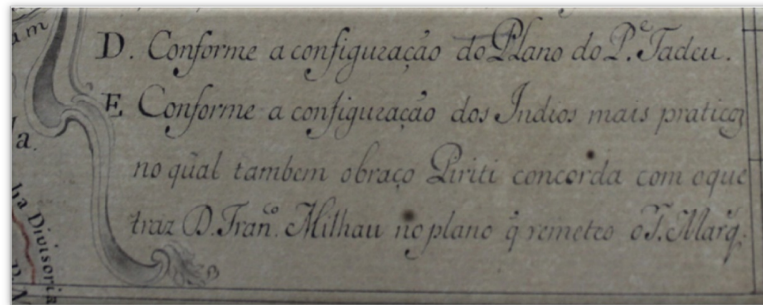 am
D. Conforme a configuração do Plano do P.ᵉ Tadeu.
E Conforme a configuração dos Indios mais praticos
la.
no qũal tambem obraço Piriti concorda com oque
traz D. Fran.ᶜᵒ Milhau no plano q̃ remeteo o T. Marq.
ha Divisoria